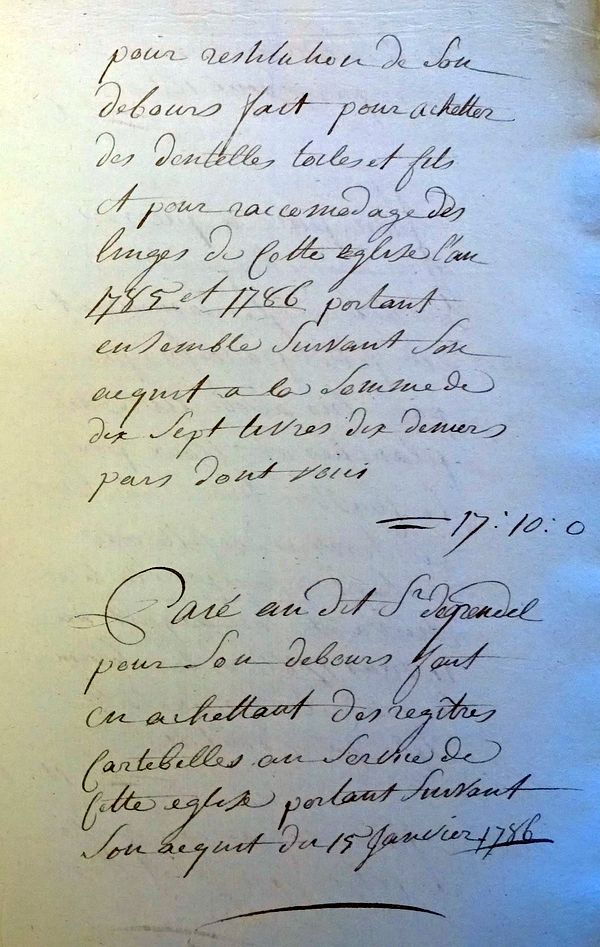 pour restitution de Son
debours fait pour achetter
des dentelles toiles et fils
et pour raccomodage des
linges de Cette eglise l'an
1785 et 1786 portant
ensemble Suivant Son
acquit a la Somme de
dix Sept livres dix deniers
pars dont voici
= 17:10:0
Paié au dit Sr
pour Son debours fait
en achettant des regitres
Cartebelles au Service de
Cette eglise portant Suivant
Son acquit du 15 Janvier 1786